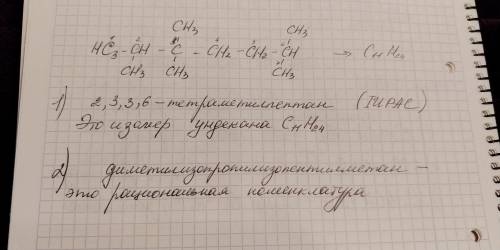 CH₃ CH₃
H₃C - CH - C - CH₂ - CH₂ - CH → C₁₁H₂₄
CH₃ CH₃ CH₃
1) 2,3,3,6-тетраметилгептан (IUPAC)
Это изомер ундекана C₁₁H₂₄
2) диметилизопропилизопентилметан -
это рациональная номенклатура